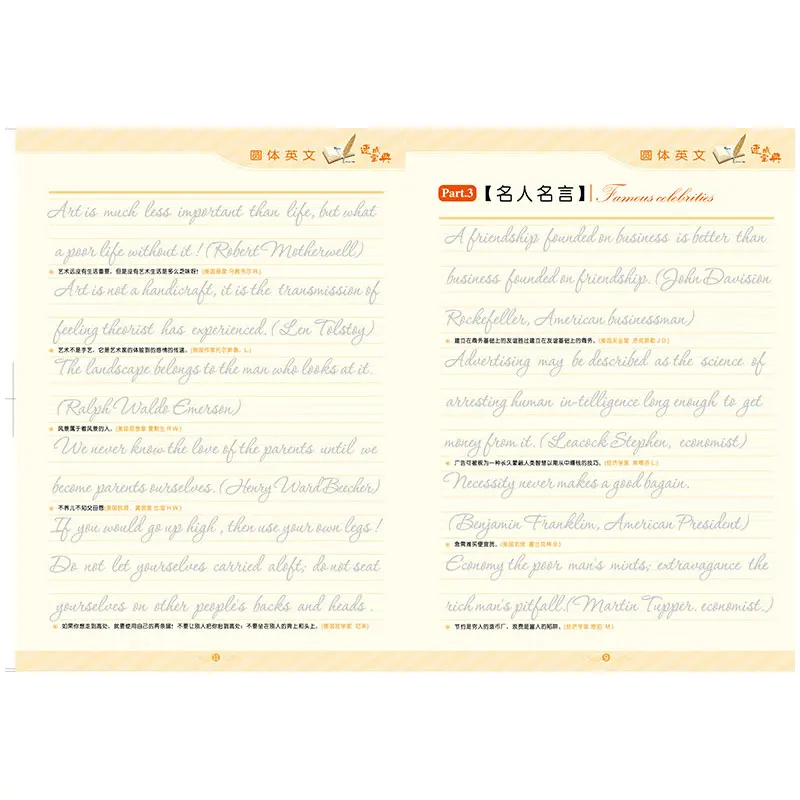 圆体英文
速成宝典
Art is much less important than life, but what
a poor life without it! (Robert Motherwell)
艺术远没有生活重要，但是没有艺术生活是多么乏味呀！
Art is not a handicraft, it is the transmission of
feeling theorist has experienced. (Len Tolstoy)
艺术不是手艺，它是艺术家的体验到的感情的传递。
The landscape belongs to the man who looks at it.
(Ralph Waldo Emerson)
风景属于看风景的人。
We never know the love of the parents until we
become parents ourselves. (Henry Ward Beecher)
不养儿不知父母恩
If you would go up high, then use your own legs!
Do not let yourselves carried aloft; do not seat
yourselves on other people's backs and heads.
如果你想走到高处，就要使用自己的两条腿！不要让别人把你抬到高处；不要坐在别人的背上和头上。
11
圆体英文
速成宝典
Part.3【名人名言】Famous celebrities
A friendship founded on business is better than
business founded on friendship. (John Davision
Rockefeller, American businessman)
建立在商务基础上的友谊胜过建立在友谊基础上的商务。
Advertising may be described as the science of
arresting human in-telligence long enough to get
money from it. (Leacock Stephen, economist)
广告可被视为一种长久蒙蔽人类智慧以期从中赚钱的技巧。
Necessity never makes a good bagain.
(Benjamin Franklim, American President)
急需难买便宜货。
Economy the poor man's mints; extravagance the
rich man's pitfall. (Martin Tupper. economist.)
节约是穷人的造币厂，浪费是富人的陷阱。
9